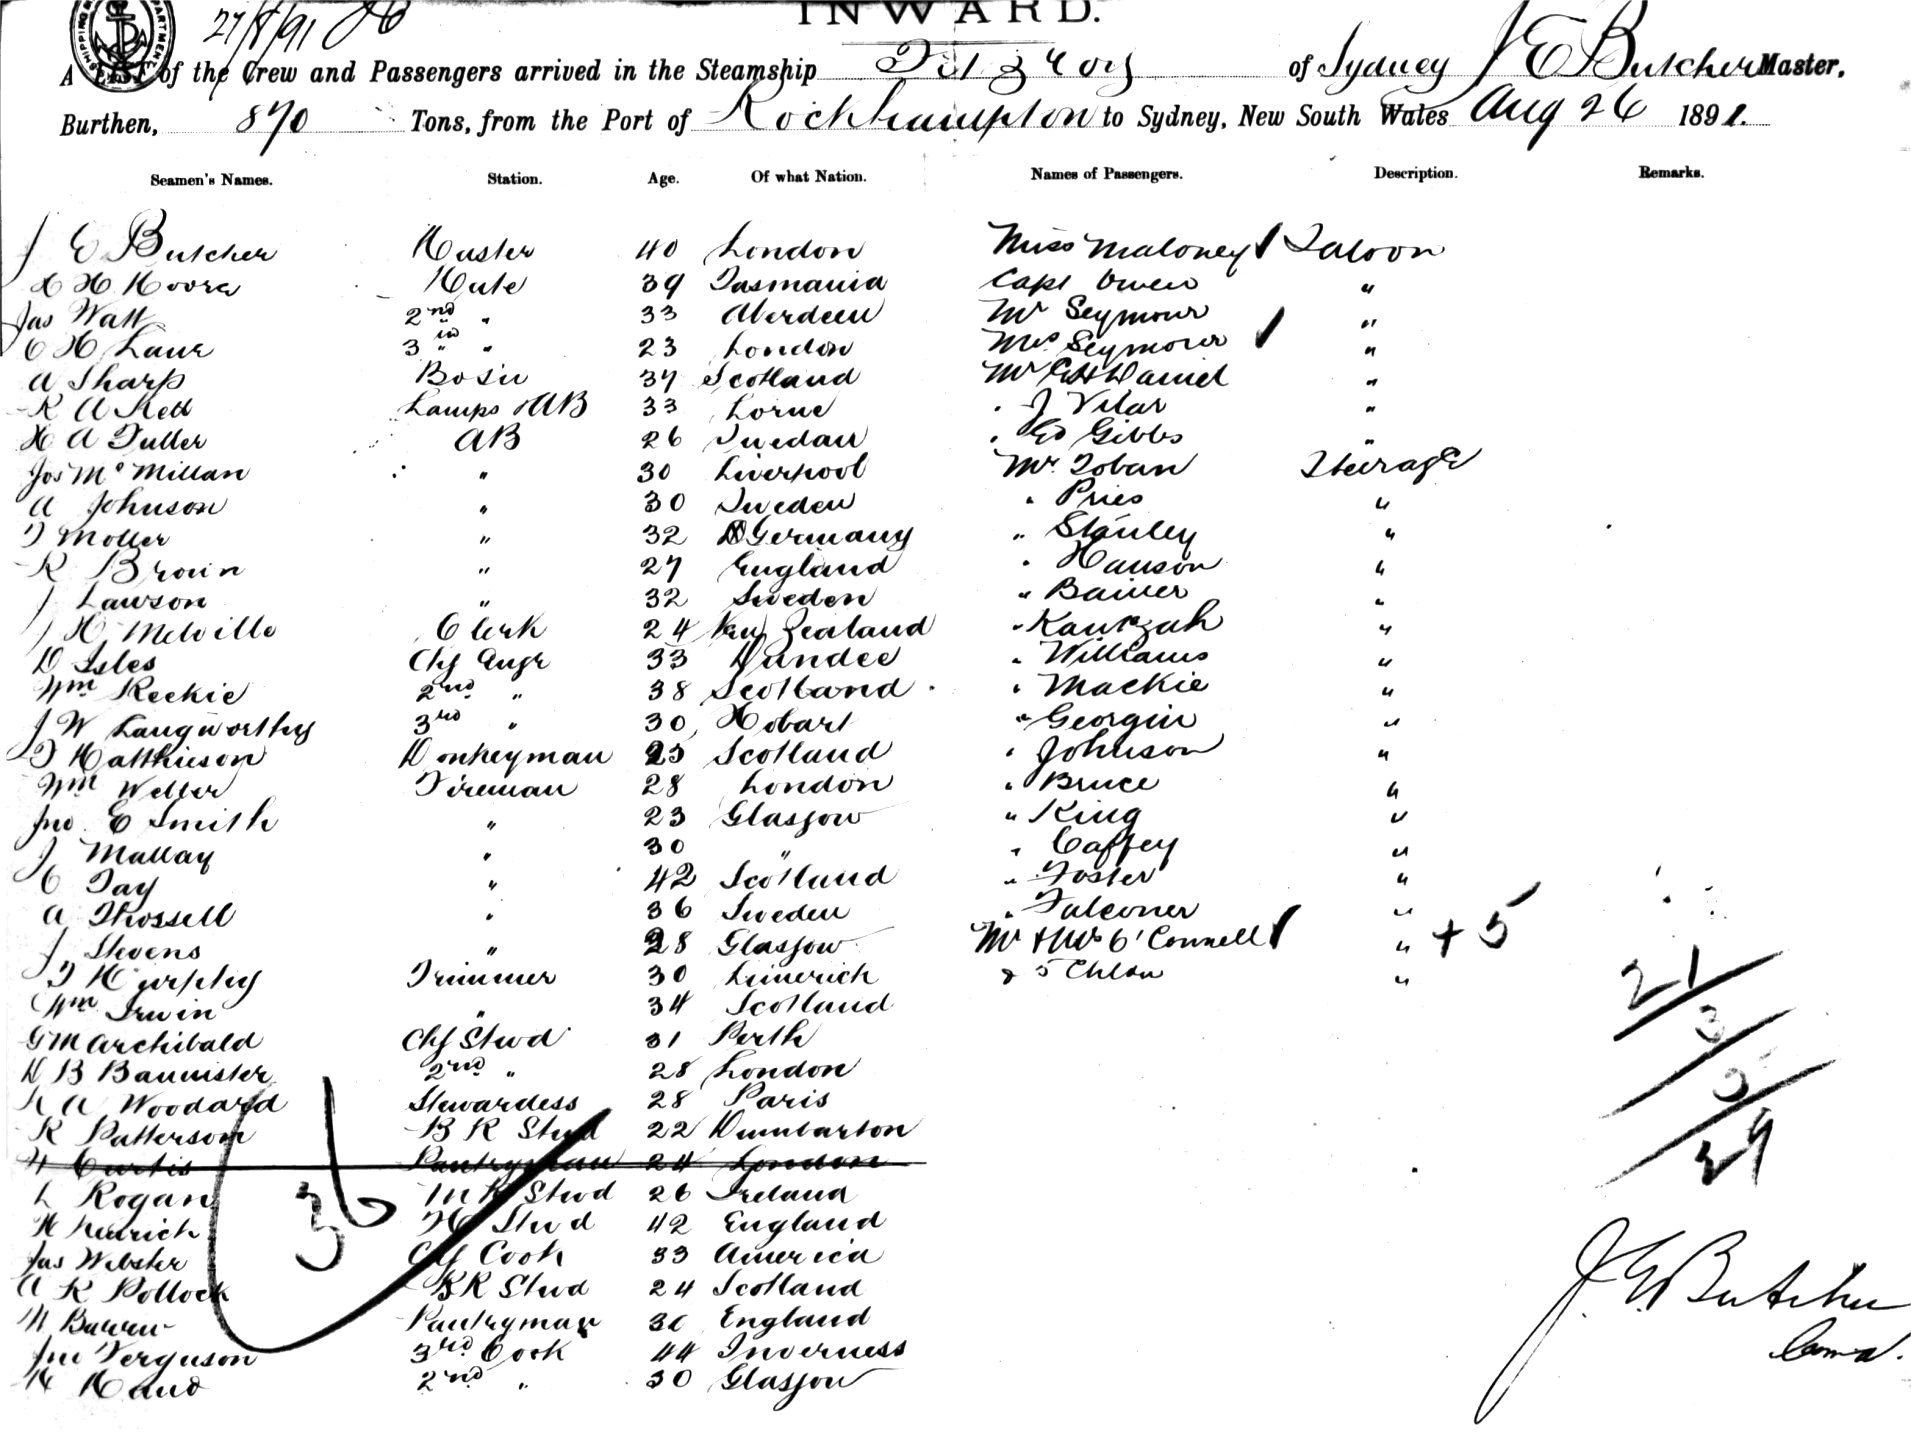 27/8/91
INWARD.
A List of the Crew and Passengers arrived in the Steamship Fitzroy of Sydney J E Butcher Master,
Burthen, 870 Tons, from the Port of Rockhampton to Sydney, New South Wales Aug 26 1891.
Seamen's Names. Station. Age. Of what Nation. Names of Passengers. Description. Remarks.
J E Butcher Master 40 London Miss Maloney Saloon
H Moore Mate 39 Tasmania Capt Owen "
Jas Watt 2nd " 33 Aberdeen Mr Seymour "
C H Lane 3 " " 23 London Mrs Seymour "
A Sharp Bosn 37 Scotland Mr Daniel "
R A Kell Lamps & AB 33 Lorne " J Vilar "
H A Fuller AB 26 Swedan " Ed Gibbs "
Jos McMillan " 30 Liverpool Mr Toban Steerage
A Johnson " 30 Sweden " Pries "
F Moller " 32 Germany " Stanley "
R Brown " 27 England " Hanson "
J Lawson " 32 Sweden "
J H Melville Clerk 24 New Zealand "
D Isles Chf Engr 33 Dundee " Williams "
Wm Reekie 2nd " 38 Scotland " Mackie "
J W Langworthy 3rd " 30 Hobart " Georgin "
F Matthieson Donkeyman 23 Scotland " Johnson "
Wm Weller Fireman 28 London " Bruce "
Jno E Smith " 23 Glasgow " King "
J Mallay " 30 " " Caffey "
C Tay " 42 Scotland " Foster "
A Throssell " 36 Sweden " Falconer "
J Stevens " 28 Glasgow Mr & Mrs O'Connell " + 5
T Murphy Trimmer 30 Limerick & 5 Chldn "
Wm Irwin " 34 Scotland
21
3
G M Archibald Chf Stwd 31 Perth
D B Bannister 2nd " 28 London
5
A Woodard Stewardess 28 Paris
R Patterson B R Stwd 22 Dumbarton
29
Curtis Pantryman 24 London
L Rogan M R Stwd 26 Ireland
36
Stwd 42 England
Jas Webster Chf Cook 33 America
A R Pollock B R Stwd 24 Scotland
J.E. Butcher
Pantryman 30 England
Jno Ferguson 3rd Cook 44 Inverness
2nd " 30 Glasgow